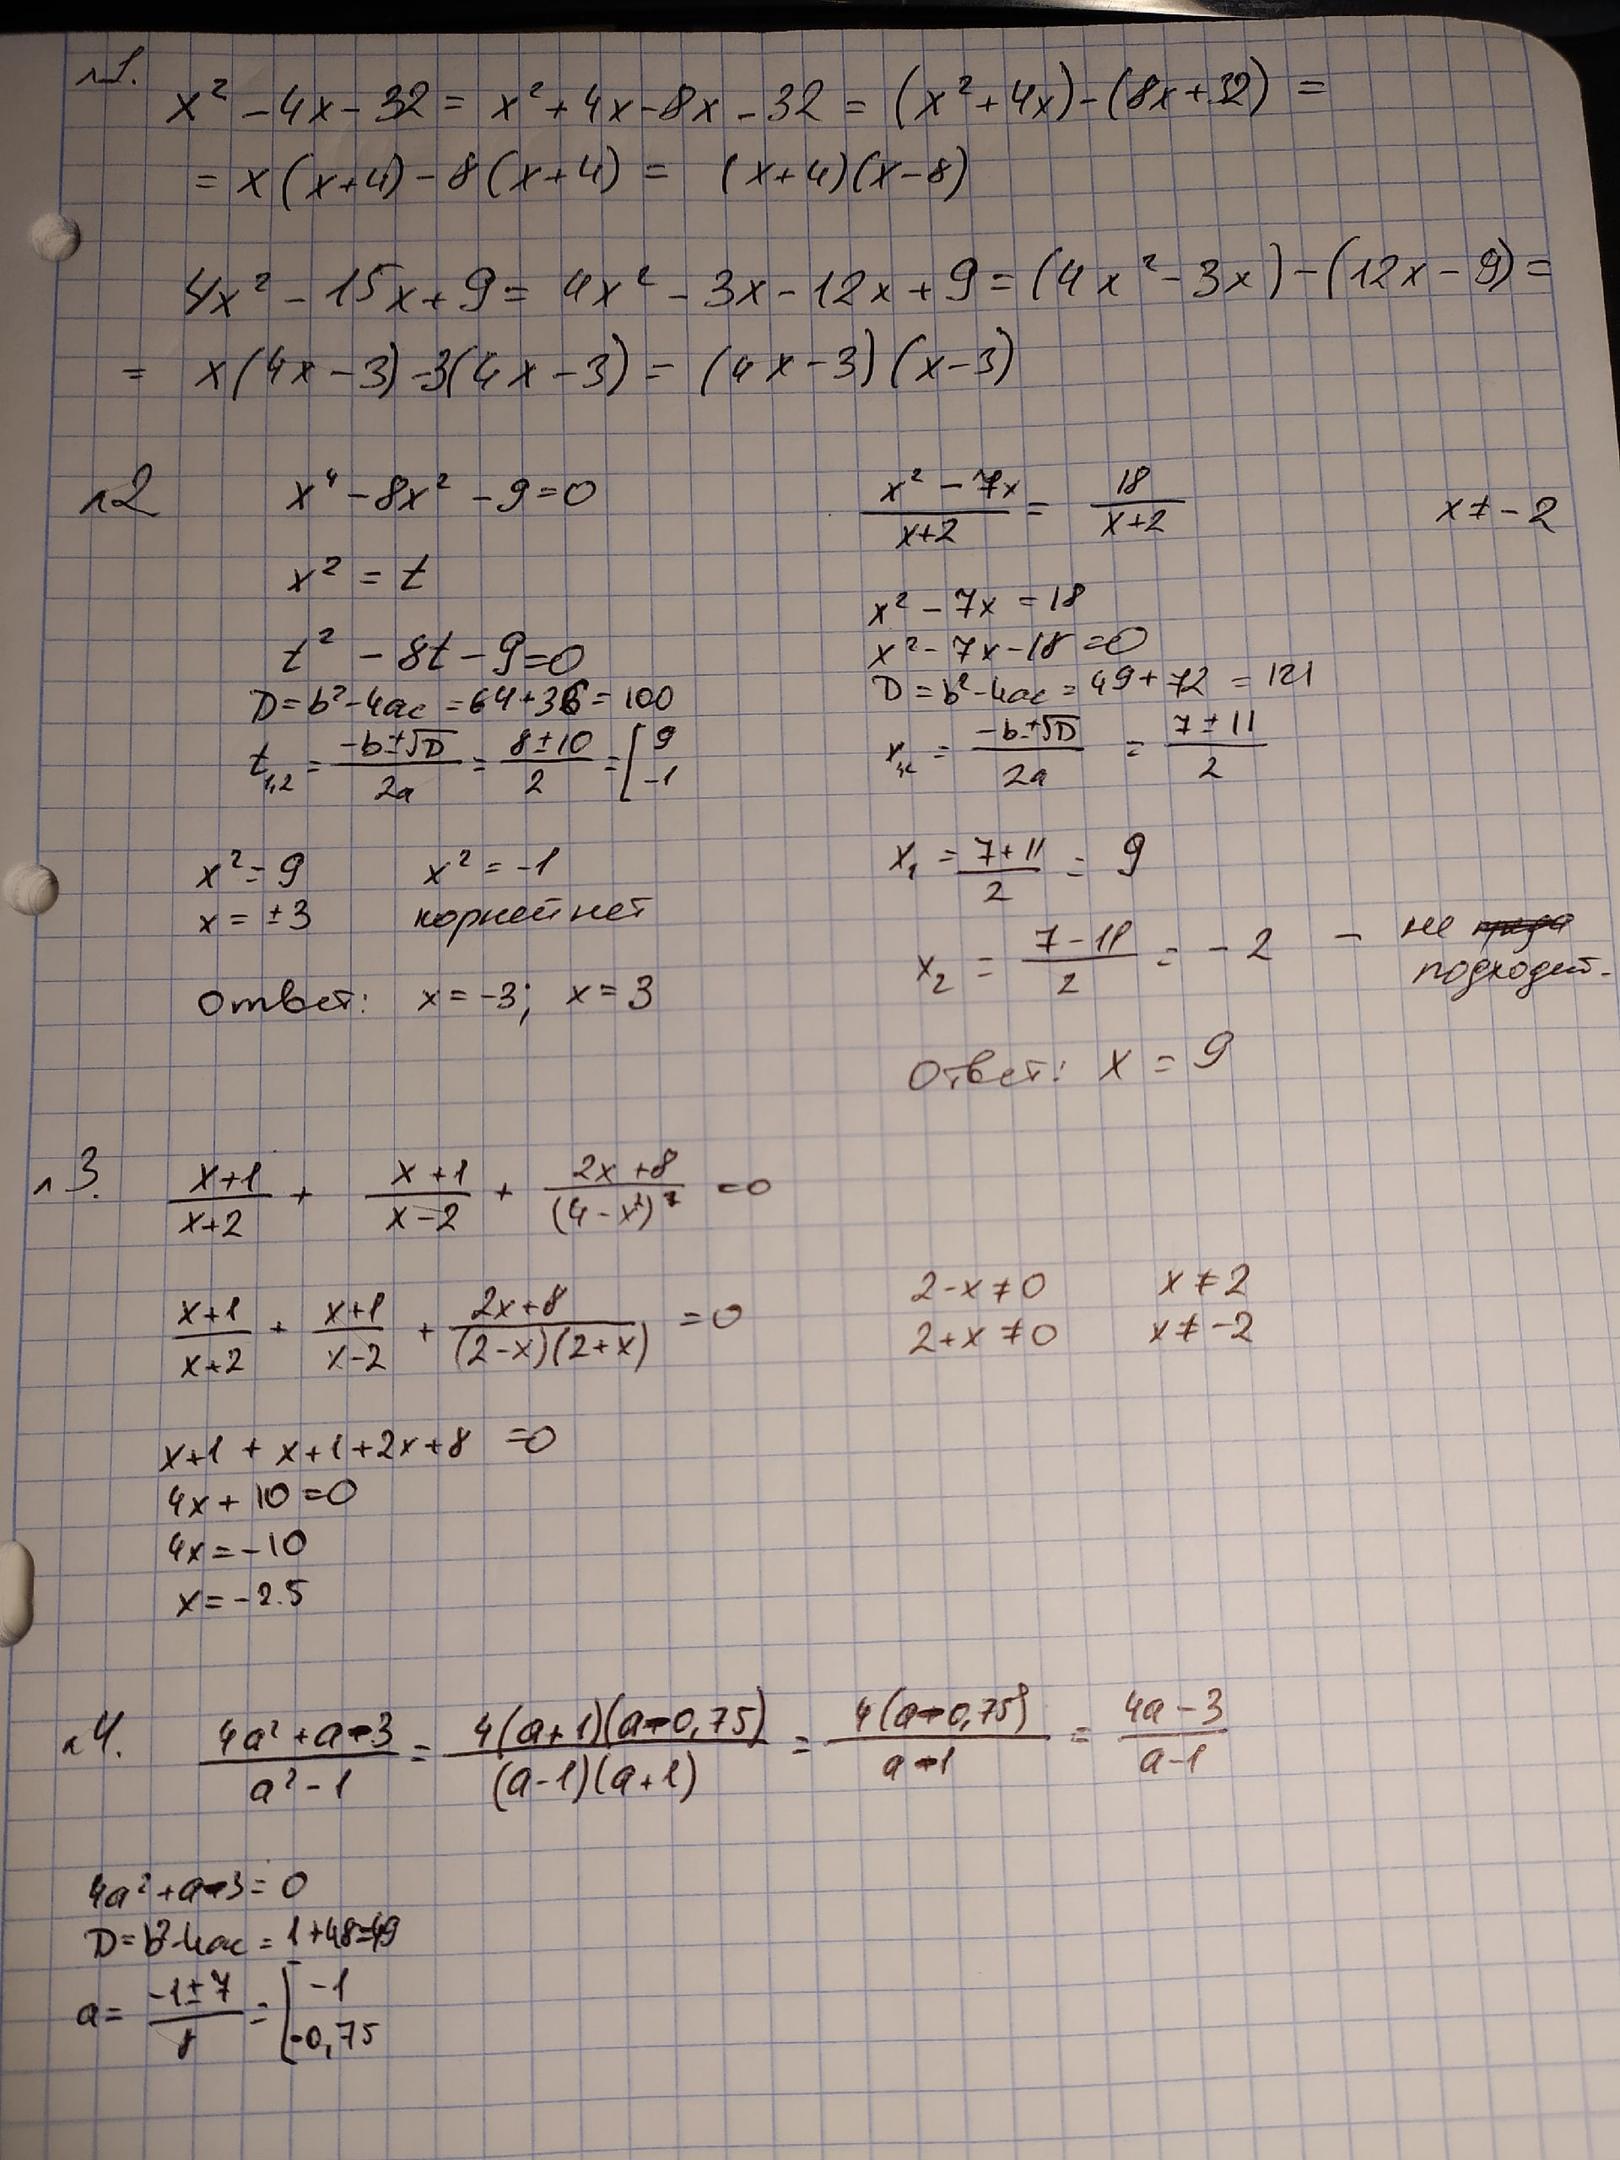 №1.
x² - 4x - 32 = x² + 4x - 8x - 32 = (x² + 4x) - (8x + 32) =
= x(x+4) - 8(x+4) = (x+4)(x-8)
4x² - 15x + 9 = 4x² - 3x - 12x + 9 = (4x² - 3x) - (12x - 9) =
= x(4x-3) - 3(4x-3) = (4x-3)(x-3)
№2
x⁴ - 8x² - 9 = 0
x² = t
t² - 8t - 9 = 0
D = b² - 4ac = 64 + 36 = 100
t₁,₂ = (-b ± √D)/2a = (8 ± 10)/2 = [ 9 -1
x² = 9 x² = -1
x = ±3 корней нет
Ответ: x = -3; x = 3
(x² - 7x)/(x+2) = 18/(x+2) x ≠ -2
x² - 7x = 18
x² - 7x - 18 = 0
D = b² - 4ac = 49 + 72 = 121
x₁,₂ = (-b ± √D)/2a = (7 ± 11)/2
x₁ = (7+11)/2 = 9
x₂ = (7-11)/2 = -2 - не
подходит.
Ответ: x = 9
№3.
(x+1)/(x+2) + (x+1)/(x-2) + (2x+8)/(4-x²) = 0
(x+1)/(x+2) + (x+1)/(x-2) + (2x+8)/((2-x)(2+x)) = 0
2-x ≠ 0 x ≠ 2
2+x ≠ 0 x ≠ -2
x+1 + x+1 + 2x+8 = 0
4x + 10 = 0
4x = -10
x = -2.5
№4.
(4a² + a - 3)/(a² - 1) = 4(a+1)(a-0,75)/((a-1)(a+1)) = 4(a-0,75)/(a-1) = (4a-3)/(a-1)
4a² + a - 3 = 0
D = b² - 4ac = 1 + 48 = 49
a = (-1 ± 7)/8 = [ -1 0,75